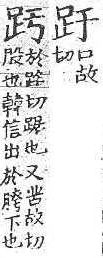 趶口故切
於路切踞也又苦故切
股也韓信出於胯下也